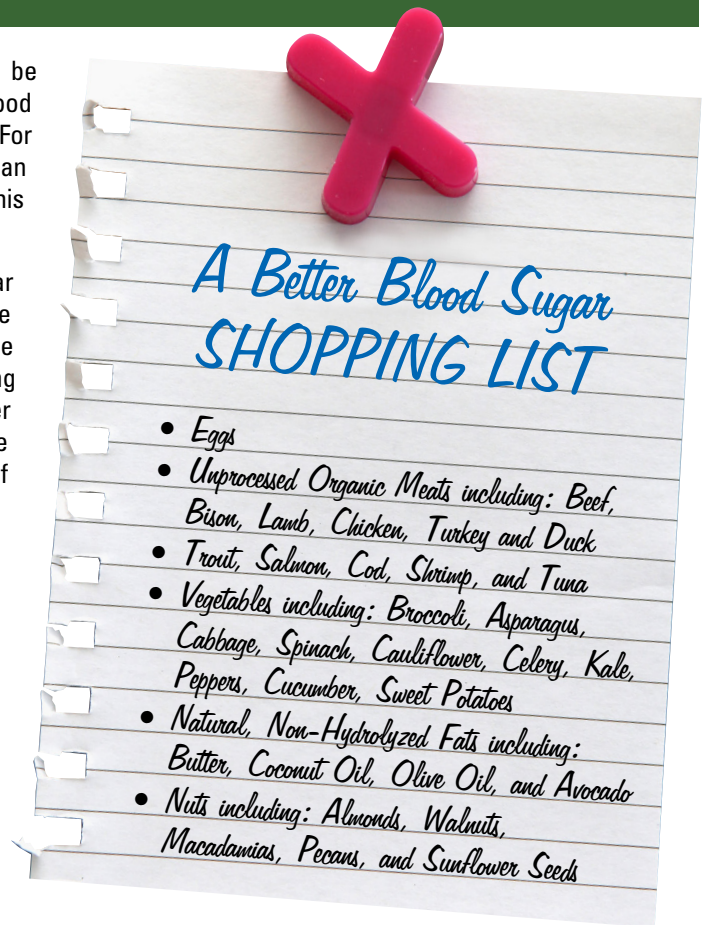 be
ood
For
an
his
ar
e
e
ng
er
e
f
A Better Blood Sugar
SHOPPING LIST
• Eggs
• Unprocessed Organic Meats including: Beef,
Bison, Lamb, Chicken, Turkey and Duck
• Trout, Salmon, Cod, Shrimp, and Tuna
• Vegetables including: Broccoli, Asparagus,
Cabbage, Spinach, Cauliflower, Celery, Kale,
Peppers, Cucumber, Sweet Potatoes
• Natural, Non-Hydrolyzed Fats including:
Butter, Coconut Oil, Olive Oil, and Avocado
• Nuts including: Almonds, Walnuts,
Macadamias, Pecans, and Sunflower Seeds